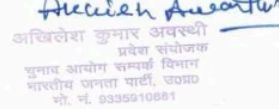 अखिलेश कुमार अवस्थी
प्रदेश संयोजक
चुनाव आयोग सम्पर्क विभाग
भारतीय जनता पार्टी, उ०प्र०
मो. नं. 9335910881